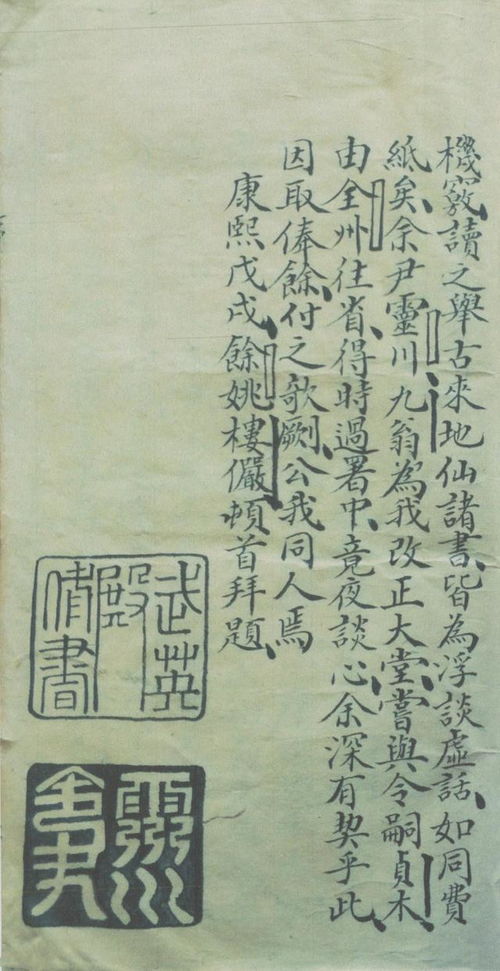 機竅讀之舉古來地仙諸書、皆為浮談虛話、如同費
紙矣、余尹靈川九翁為我改正大堂、嘗與令嗣貞木、
由全州往省、得時過署中、竟夜談心、余深有契乎此、
因取俸餘、付之歌劂、公我同人焉
康熙戊戌、餘姚樓儼頓首拜題、
武英
殿
脩書
靈川
令尹